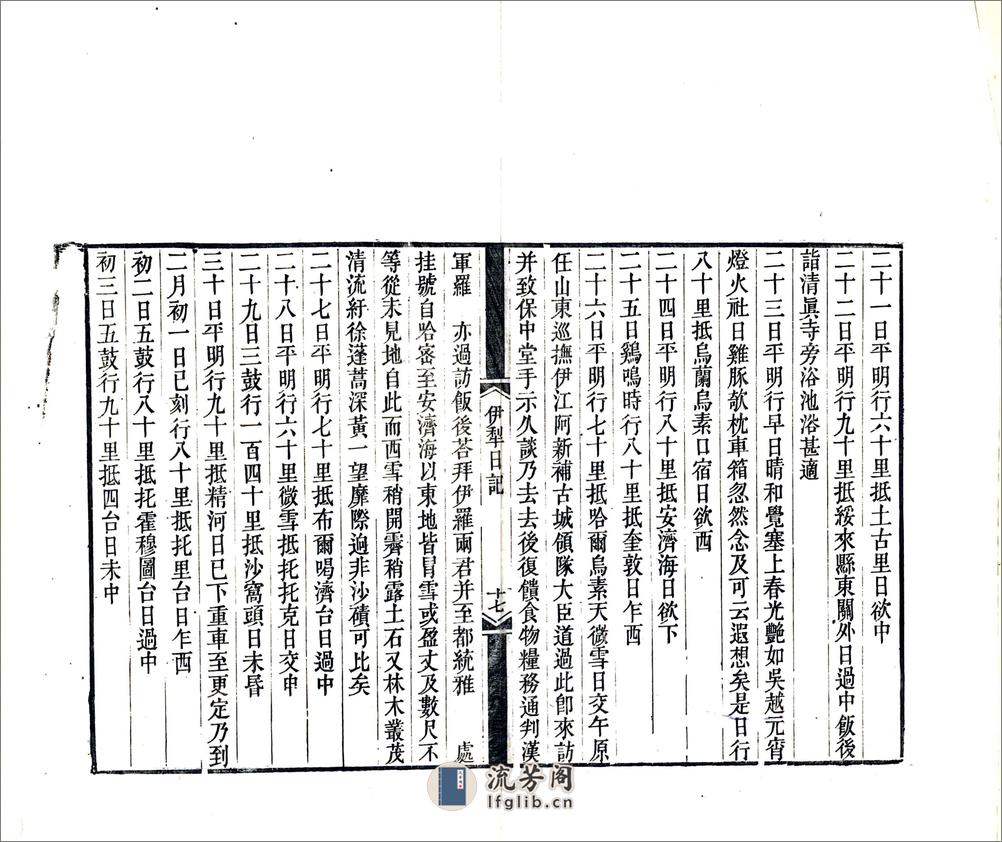 二十一日平明行六十里抵土古里日欲中
二十二日平明行九十里抵綏來縣東關外日過中飯後
詣清眞寺旁浴池浴甚適
二十三日平明行早日晴和覺塞上春光艷如吳越元宵
燈火社日雞豚欹枕車箱忽然念及可云遐想矣是日行
八十里抵烏蘭烏素口宿日欲西
二十四日平明行八十里抵安濟海日欲下
二十五日鷄鳴時行八十里抵奎敦日乍西
二十六日平明行七十里抵哈爾烏素天微雪日交午原
任山東巡撫伊江阿新補古城領隊大臣道過此卽來訪
并致保中堂手示久談乃去去後復饋食物糧務通判漢
伊犁日記
十七
軍羅 亦過訪飯後荅拜伊羅兩君并至都統雅 處
挂號自哈密至安濟海以東地皆冒雪或盈丈及數尺不
等從未見地自此而西雪稍開霽稍露土石又林木叢茂
清流紆徐蓬蒿深黃一望靡際逈非沙磧可比矣
二十七日平明行七十里抵布爾喝濟台日過中
二十八日平明行六十里微雪抵托托克日交申
二十九日三鼓行一百四十里抵沙窩頭日未昏
三十日平明行九十里抵精河日已下重車至更定乃到
二月初一日巳刻行八十里抵托里台日乍西
初二日五鼓行八十里抵托霍穆圖台日過中
初三日五鼓行九十里抵四台日未中
流芳阁
lfglib.cn